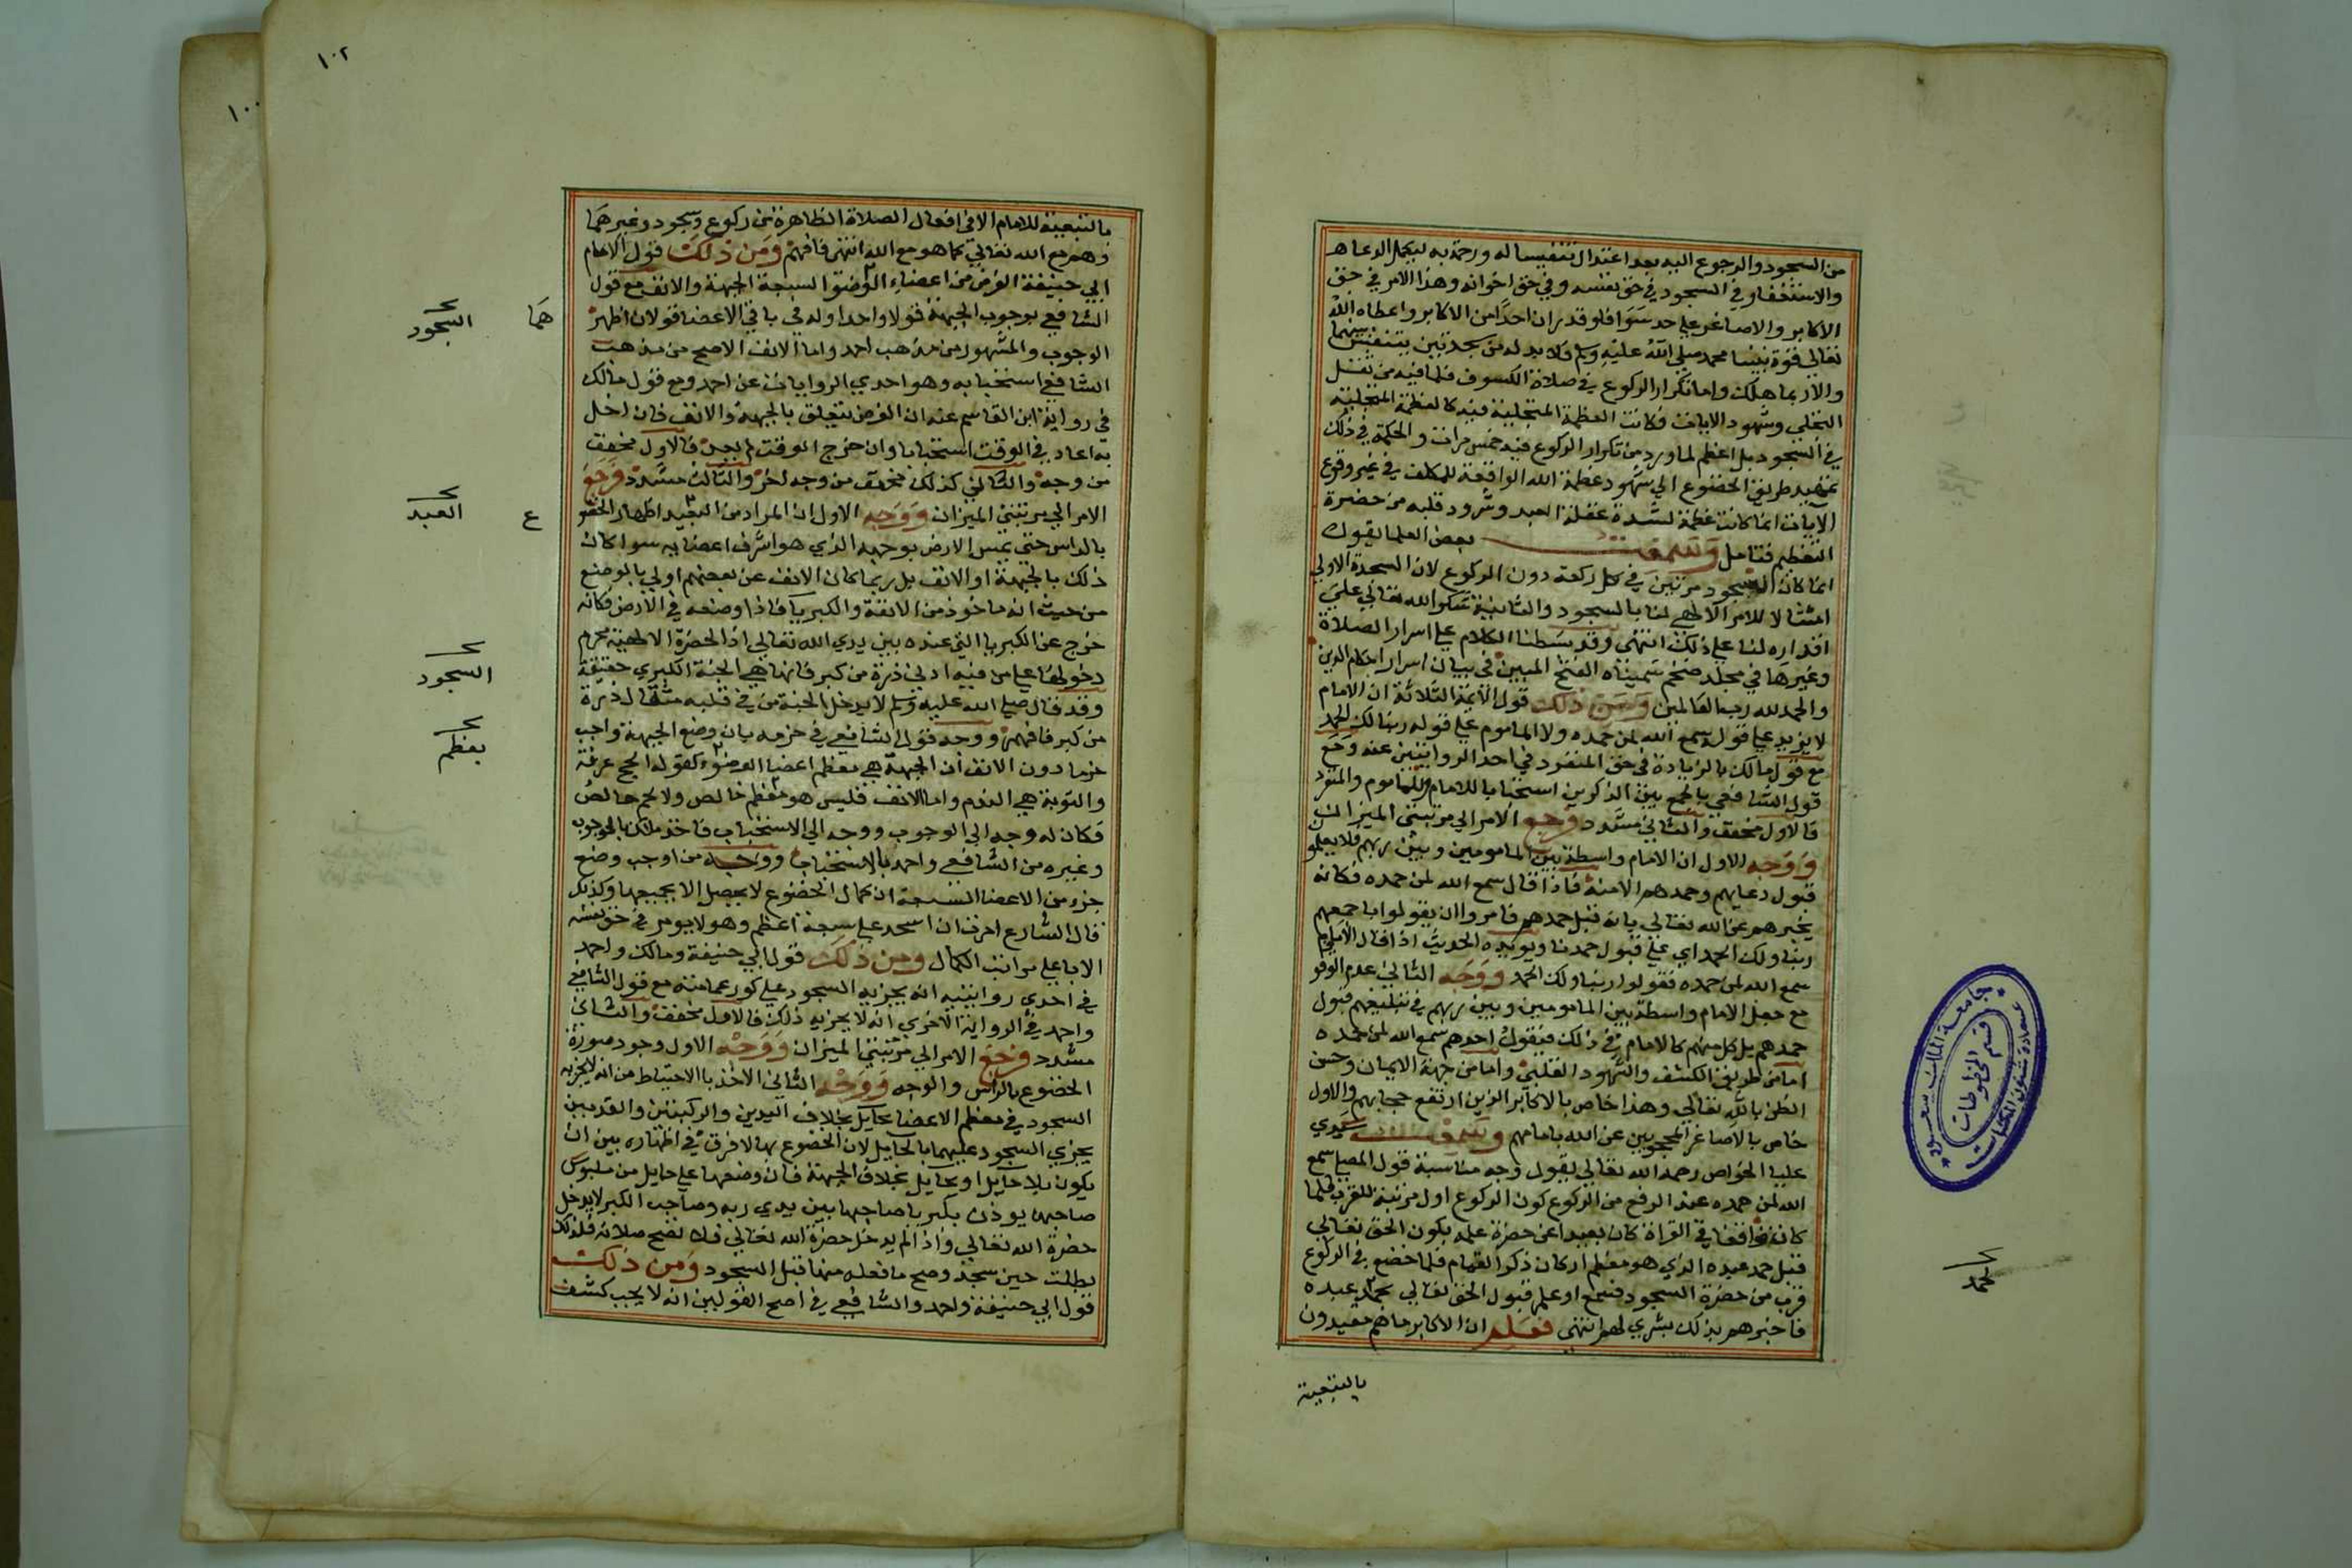 من السجود والرجوع اليه بعد اعتدال تنفيسا له ورحمة به ليحمل الدعاء
والاستغفار في السجود في حق نفسه وفي حق اخوانه وهذا الامر في حق
الاكابر والاصاغر على حد سوا فلو قدر ان احدا من الاكابر واعطاه الله
تعالى قوة نبينا محمد صلى الله عليه وسلم فلا بد له من سجدتين يتنفس بينهما
والا ربما هلك واما تكرار الركوع في صلاة الكسوف فلما فيه من ثقل
التجلي وشهود الايات فكانت العظمة المتجلية فيه كالعظمة المتجلية
في السجود بل اعظم لما ورد من تكرار الركوع فيه خمس مرات والحكمة في ذلك
تمهيد طريق الخضوع الي شهود عظمة الله الواقعة للمكلف في غير وقوع
الايات انما كانت عظمة لشدة غفلة العبد وشرود قلبه من حضرة
التعظيم فتامل وسمعت بعض العلما يقول
انما كان السجود مرتين في كل ركعة دون الركوع لان السجدة الاولى
امتثالا للامر الالهي لنا بالسجود والثانية شكرا لله تعالي علي
اقداره لنا علي ذلك انتهى وقد بسطنا الكلام علي اسرار الصلاة
وغيرها في مجلد ضخم سميناه الفتح المبين في بيان اسرار احكام الدين
والحمد لله رب العالمين ومن ذلك قول الائمة الثلاثة ان الامام
لا يزيد علي قوله سمع الله لمن حمده ولا الماموم علي قوله ربنا لك الحمد
مع قول مالك بالزيادة في حق المنفرد في احد الروايتين عنه ومع
قول الشافعي بالجمع بين الذكرين استحبابا للامام والماموم والمنفرد
فالاول مخفف والثاني مشدد فرجع الامر الي مرتبتي الميزان
ووجه الاول ان الامام واسطة بين المامومين وبين ربهم فلا يعلمو
قبول دعايهم وحمدهم الا منه فاذا قال سمع الله لمن حمده فكانه
يخبرهم عن الله تعالي بانه قبل حمدهم فامروا ان يقولوا باجمعهم
ربنا ولك الحمد اي علي قبول حمدنا ويويده الحديث اذا قال الامام
سمع الله لمن حمده فقولوا ربنا ولك الحمد ووجه الثاني عدم الوقو
مع جعل الامام واسطة بين المامومين وبين ربهم في تبليغهم قبول
حمدهم بل كل منهم كالامام في ذلك فيقول احدهم سمع الله لمن حمده
اما من طريق الكشف والشهود القلبي واما من جهة الايمان وحسن
الظن بالله تعالي وهذا خاص بالاكابر الذين ارتفع حجابهم والاول
خاص بالاصاغر المحجوبين عن الله بامامهم وسمعت سيدي
عليا الخواص رحمه الله تعالي يقول وجه مناسبة قول المصلي سمع
الله لمن حمده عند الرفع من الركوع كون الركوع اول مرتبة للقرب فلما
كان واقفا في القراة كان بعيدا عن حضرة علمه بكون الحق تعالي
قبل حمد عبده الذي هو معظم اركان ذكر القيام فلما خضع في الركوع
قرب من حضرة السجود فسمع او علم قبول الحق تعالي بحمد عبده
فاخبرهم بذلك بشري لهم انتهي فعلم ان الاكابر ما هم مقيدون
بالتبعية
الحمد
جامعة الملك سعود
عمادة شئون المكتبات
قسم المخطوطات
١٠٢
١٠٠
بالتبعية للامام الا في افعال الصلاة الظاهرة من ركوع وسجود وغيرهما
وهم مع الله تعالي كما هو مع الله انتهى فافهم ومن ذلك قول الامام
ابي حنيفة الفرض من اعضاء الوضوء السبعة الجبهة والانف مع قول
الشافعي بوجوب الجبهة قولا واحدا وله في باقي الاعضا قولان اظهر
الوجوب والمشهور من مذهب احمد واما الانف الاصح من مذهب
الشافعي استحبابه وهو احدي الروايات عن احمد ومع قول مالك
في رواية ابن القاسم عنه ان الفرض يتعلق بالجبهة والانف فان اخل
به اعاد في الوقت استحبابا وان خرج الوقت لم يعد فالاول مخفف
من وجه والثاني كذلك مخفف من وجه اخر والثالث مشدد فرجع
الامر الي مرتبتي الميزان ووجه الاول ان المراد من العبد اظهار الخضو
بالراس حتى يمس الارض بوجهه الذي هو اشرف اعضايه سوا كان
ذلك بالجبهة او الانف بل ربما كان الانف عن بعضهم اولي بالوضع
من حيث انه ماخوذ من الانفة والكبريا فاذا وضعه في الارض فكانه
خرج عن الكبريا التي عنده بين يدي الله تعالي اذ الحضرة الالهية محرم
دخولها علي من فيه ادني ذرة من كبر فانها هي الجنة الكبري حقيقة
وقد قال صلي الله عليه وسلم لا يدخل الجنة من في قلبه مثقال ذرة
من كبر فافهم ووجه قول الشافعي في جزمه بان وضع الجبهة واجب
جزما دون الانف ان الجبهة هي معظم اعضا الوضوء كقوله الحج عرفة
والتوبة هي الندم واما الانف فليس هو معظم خالص ولا لحم خالص
فكان له وجه الي الوجوب ووجه الي الاستحباب فاخذ مالك بالوجوب
وغيره من الشافعي واحمد بالاستحباب ووجه من اوجب وضع
جزء من الاعضا السبعة ان كمال الخضوع لا يحصل الا بجميعها وكذلك
قال الشارع امرت ان اسجد علي سبعة اعظم وهو لا يومر في حق نفسه
الا باعلي مراتب الكمال ومن ذلك قول ابي حنيفة ومالك واحمد
في احدى روايتيه انه يجزيه السجود علي كور عمامته مع قول الشافعي
واحمد في الرواية الاخري انه لا يجزيه ذلك فالاول مخفف والثاني
مشدد فرجع الامر الي مرتبتي الميزان ووجه الاول وجود صورة
الخضوع بالراس والوجه ووجه الثاني الاخذ بالاحتياط من انه لا يجزيه
السجود في معظم الاعضا بحايل بخلاف اليدين والركبتين والقدمين
يجزي السجود عليهما بالحايل لان الخضوع بها لا فرق في اظهاره بين ان
يكون بلا حايل او بحايل بخلاف الجبهة فان وضعها علي حايل من ملبوس
صاحبها يوذن بكبريا صاحبها بين يدي ربه وصاحب الكبر لا يدخل
حضرة الله تعالي واذا لم يدخل حضرة الله تعالي فلا تصح صلاته فلذلك
بطلت حين سجد وصح ما فعله منها قبل السجود ومن ذلك
قول ابي حنيفة واحمد والشافعي في اصح القولين انه لا يجب كشف
هما
السجود
ع
العبد
السجود
بعظم